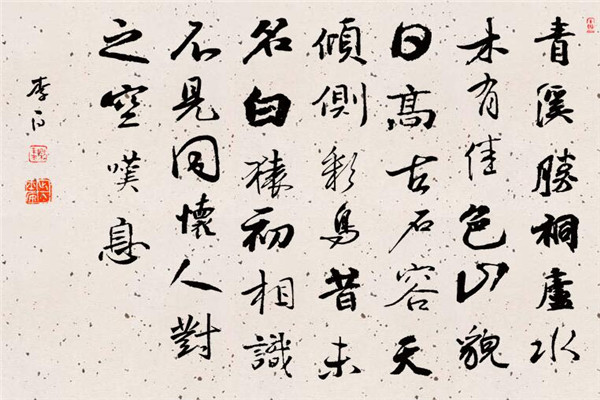 青溪勝桐廬水
木有佳色山貌
日高古石容天
傾側彩鳥昔未
名白猿初相識
不見同懷人對
之空嘆息
李